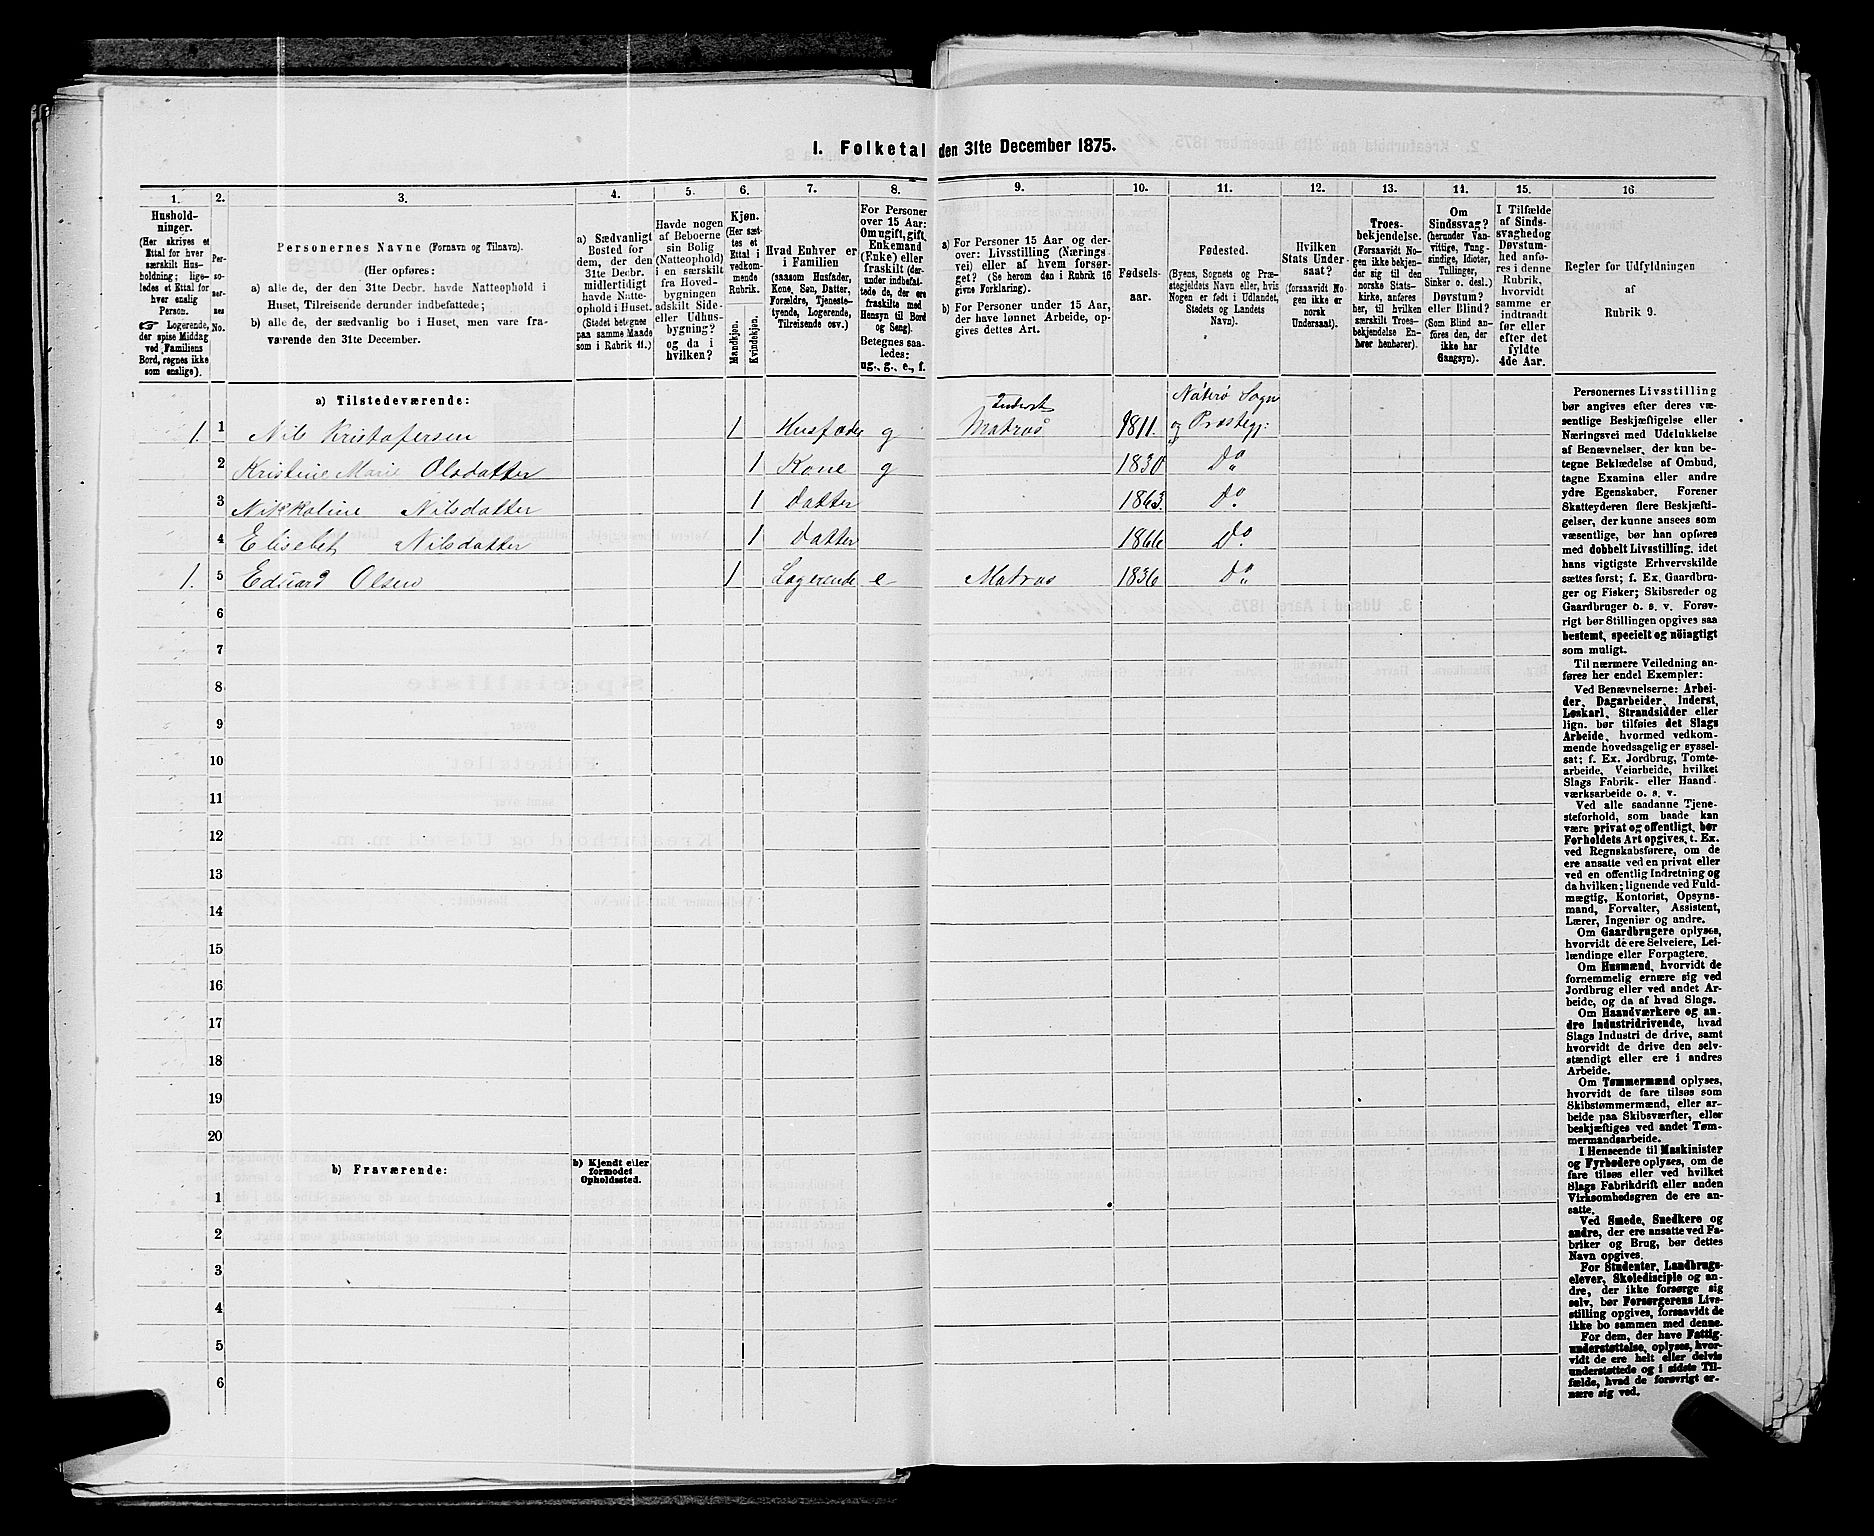 I. Folketal den 31te December 1875.
1. 2. 3. 4. 5. 6. 7. 8. 9. 10. 11. 12. 13. 14. 15. 16
Hushold-
ninger.
(Her skrives et
Ettal for hver
særskilt Hus-
holdning; lige-
ledes et Ettal for
hver enslig
Person.
☞ Logerende,
der spise Middag
ved Familiens
Bord, regnes ikke
som enslige).
Per-
so-
ner-
nes
No.
Personernes Navne (Fornavn og Tilnavn).
(Her opføres:
a) alle de, der den 31te Decbr. havde Natteophold i
Huset, Tilreisende derunder indbefattede;
b) alle de, der sædvanlig bo i Huset, men vare fra-
værende den 31te December.
a) Sædvanligt
Bosted for
dem, der den
31te Decbr.
midlertidigt
havde Natte-
ophold i Huset.
(Stedet betegnes
paa samme Maade
som i Rubrik 11.)
Havde nogen
af Beboerne
sin Bolig
(Natteophold)
i en særskilt
fra Hoved-
bygningen
adskilt Side-
eller Udhus-
bygning?
og da i
hvilken?
Kjøn.
(Her sæt-
tes et
Ettal i
vedkom-
mende
Rubrik.
Mandkjøn.
Kvindekjøn.
Hvad Enhver er
i Familien
(saasom Husfader,
Kone, Søn, Datter,
Forældre, Tjeneste-
tyende, Logerende,
Tilreisende osv.)
For Personer
over 15 Aar:
Om ugift, gift,
Enkemand
(Enke) eller
fraskilt (der-
under indbefat-
tede de, der ere
fraskilte med
Hensyn til Bord
og Seng).
Betegnes saa-
ledes:
ug., g., e., f.
a) For Personer 15 Aar og der-
over: Livsstilling (Nærings-
vei) eller af hvem forsør-
get? (Se herom den i Rubrik 16
givne Forklaring).
b) For Personer under 15 Aar,
der have lønnet Arbeide, op-
gives dettes Art.
Fødsels-
aar.
Fødested.
(Byens, Sognets og Præ-
stegjeldets Navn eller, hvis
Nogen er født i Udlandet,
Stedets og Landets
Navn).
Hvilken
Stats Under-
saat?
(forsaavidt No-
gen ikke er
norsk
Undersaat).
Troes-
bekjendelse.
(Forsaavidt No-
gen ikke bekjen-
der sig til den
norske Stats-
kirke, anføres
her, til hvilken
særskilt Troes-
bekjendelse En-
hver henhører).
Om
Sindssvag?
(herunder Van-
vittige, Tung-
sindige, Idioter,
Tullinger,
Sinker o. desl.)
Døvstum?
eller Blind?
(Som Blind an-
føres den, der
ikke har
Gangsyn).
I Tilfælde
af Sinds-
svaghed og
Døvstum-
hed anfø-
res i denne
Rubrik,
hvorvidt
samme er
indtraadt
før eller
efter det
fyldte
4de Aar.
Regler for Udfyldningen
af
Rubrik 9.
a) Tilstedeværende:
Inderst Nøterø Sogn
1. 1 Nils Kristofersen 1 Husfader g Matros 1811. og Præstegj:
2 Kristine Marie Olsdatter 1 Kone g 1830 Do
3 Nikkoline Nilsdatter 1 Datter 1863. Do
4 Elisebet Nilsdatter 1 Datter 1866 Do
1. 5 Eduard Olsen 1 Logerende e Matros 1836 Do
6
7
8
9
10
11
12
13
14
15
16
17
18
19
20
b) Fraværende:
b) Kjendt eller
formodet
Opholdssted.
1
2
3
4
5
6
Personernes Livsstilling
bør angives efter deres væ-
sentlige Beskjæftigelse eller
Næringsvei med Udelukkelse
af Benævnelser, der kun be-
tegne Beklædelse af Ombud,
tagne Examina eller andre
ydre Egenskaber. Forener
Skatteyderen flere Beskjæfti-
gelser, der kunne ansees som
væsentlige, bør han opføres
med dobbelt Livsstilling, idet
hans vigtigste Erhvervskilde
sættes først; f. Ex. Gaardbru-
ger og Fisker; Skibsreder og
Gaardbruger o. s. v. Forøv-
rigt bør Stillingen opgives saa
bestemt, specielt og nöiagtigt
som muligt.
Til nærmere Veiledning an-
føres her endel Exempler:
Ved Benævnelserne: Arbei-
der, Dagarbeider, Inderst,
Løskarl, Strandsidder eller
lign. bør tilføies det Slags
Arbeide, hvormed vedkom-
mende hovedsagelig er syssel-
sat; f. Ex. Jordbrug, Tomte-
arbeide, Veiarbeide, hvilket
Slags Fabrik- eller Haand-
værksarbeide o. s. v.
Ved alle saadanne Tjene-
steforhold, som baade kan
være privat og offentligt, bør
Forholdets Art opgives, t. Ex.
ved Regnskabsførere, om de
ere ansatte ved en privat eller
ved en offentlig Indretning og
da hvilken; lignende ved Fuld-
mægtig, Kontorist, Opsyns-
mand, Forvalter, Assistent,
Lærer, Ingeniør og andre.
Om Gaardbrugere oplyses,
hvorvidt de ere Selveiere, Lei-
lændinge eller Forpagtere.
Om Husmænd, hvorvidt de
fornemmelig ernære sig ved
Jordbrug eller ved andet Ar-
beide, og da af hvad Slags.
Om Haandværkere og an-
dre Industridrivende, hvad
Slags Industri de drive, samt
hvorvidt de drive den selv-
stændigt eller ere i andres
Arbeide.
Om Tømmermænd oplyses,
hvorvidt de fare tilsøs som
Skibstømmermænd, eller ar-
beide paa Skibsværfter, eller
beskjæftiges ved andet Tøm-
mermandsarbeide.
I Henseende til Maskinister
og Fyrbødere oplyses, om de
fare tilsøs eller ved hvilket
Slags Fabrikdrift eller anden
Virksomhedsgren de ere an-
satte.
Ved Smede, Snedkere og
andre, der ere ansatte ved Fa-
briker og Brug, bør dettes
Navn opgives.
For Studenter, Landbrugs-
elever, Skoledisciple og an-
dre, der ikke forsørge sig
selv, bør Forsørgerens Livs-
stilling opgives, forsaavidt de
ikke bo sammen med denne.
For dem, der have Fattig-
understøttelse, oplyses, hvor-
vidt de ere helt eller delvis
understøttede og i sidste Til-
fælde, hvad de forøvrigt er-
nære sig ved.